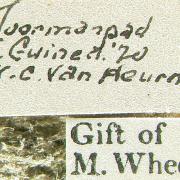 Doormanpad
Guinea. '20
W. C. van Heurn
Gift of
M. Whee